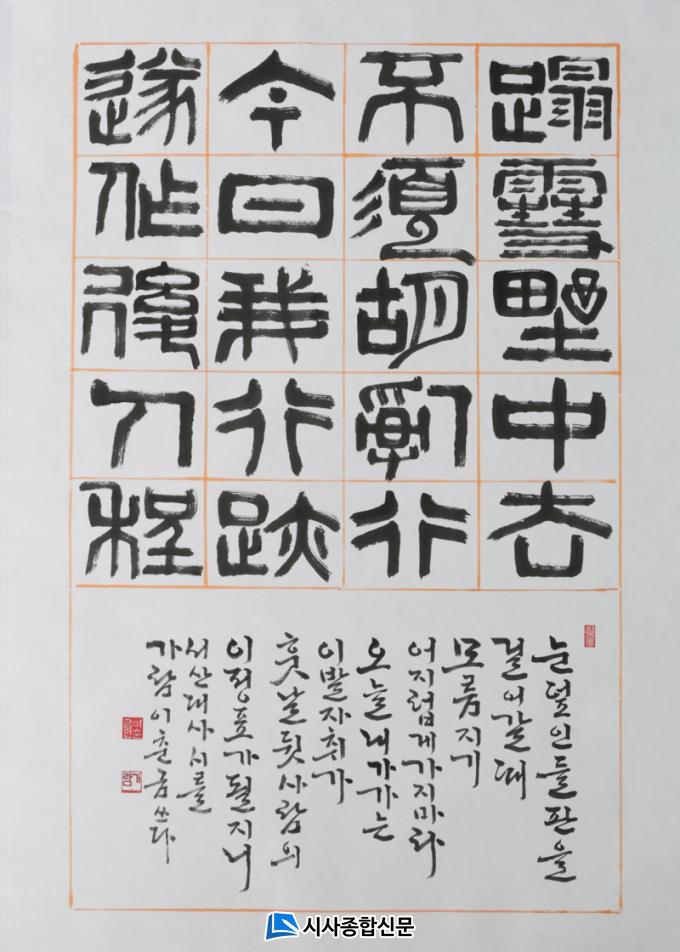 蹋雪野中去
不須胡亂行
今日我行跡
遂作後人程
눈덮인들판을
걸어갈때
모름지기
어지럽게가지마라
오늘내가가는
이발자취가
훗날뒷사람의
이정표가될지니
서산대사시를
가람이춘금쓰다
이춘금인
가람
시사종합신문